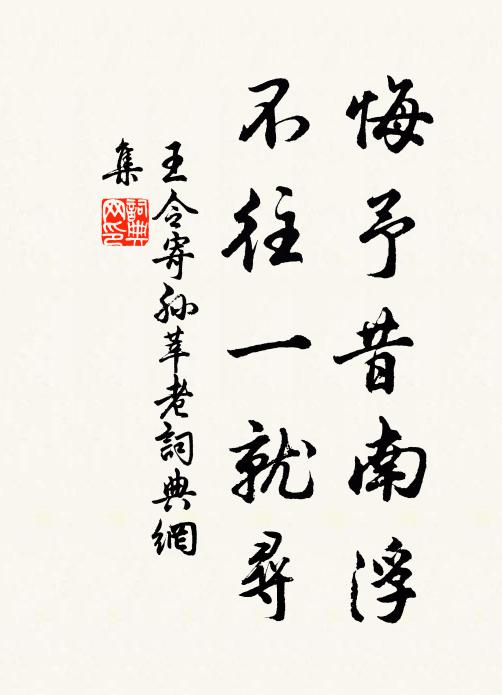 悔予昔南浮
不往一就尋
王令寄孫莘老詞典網
集
詞典
网印